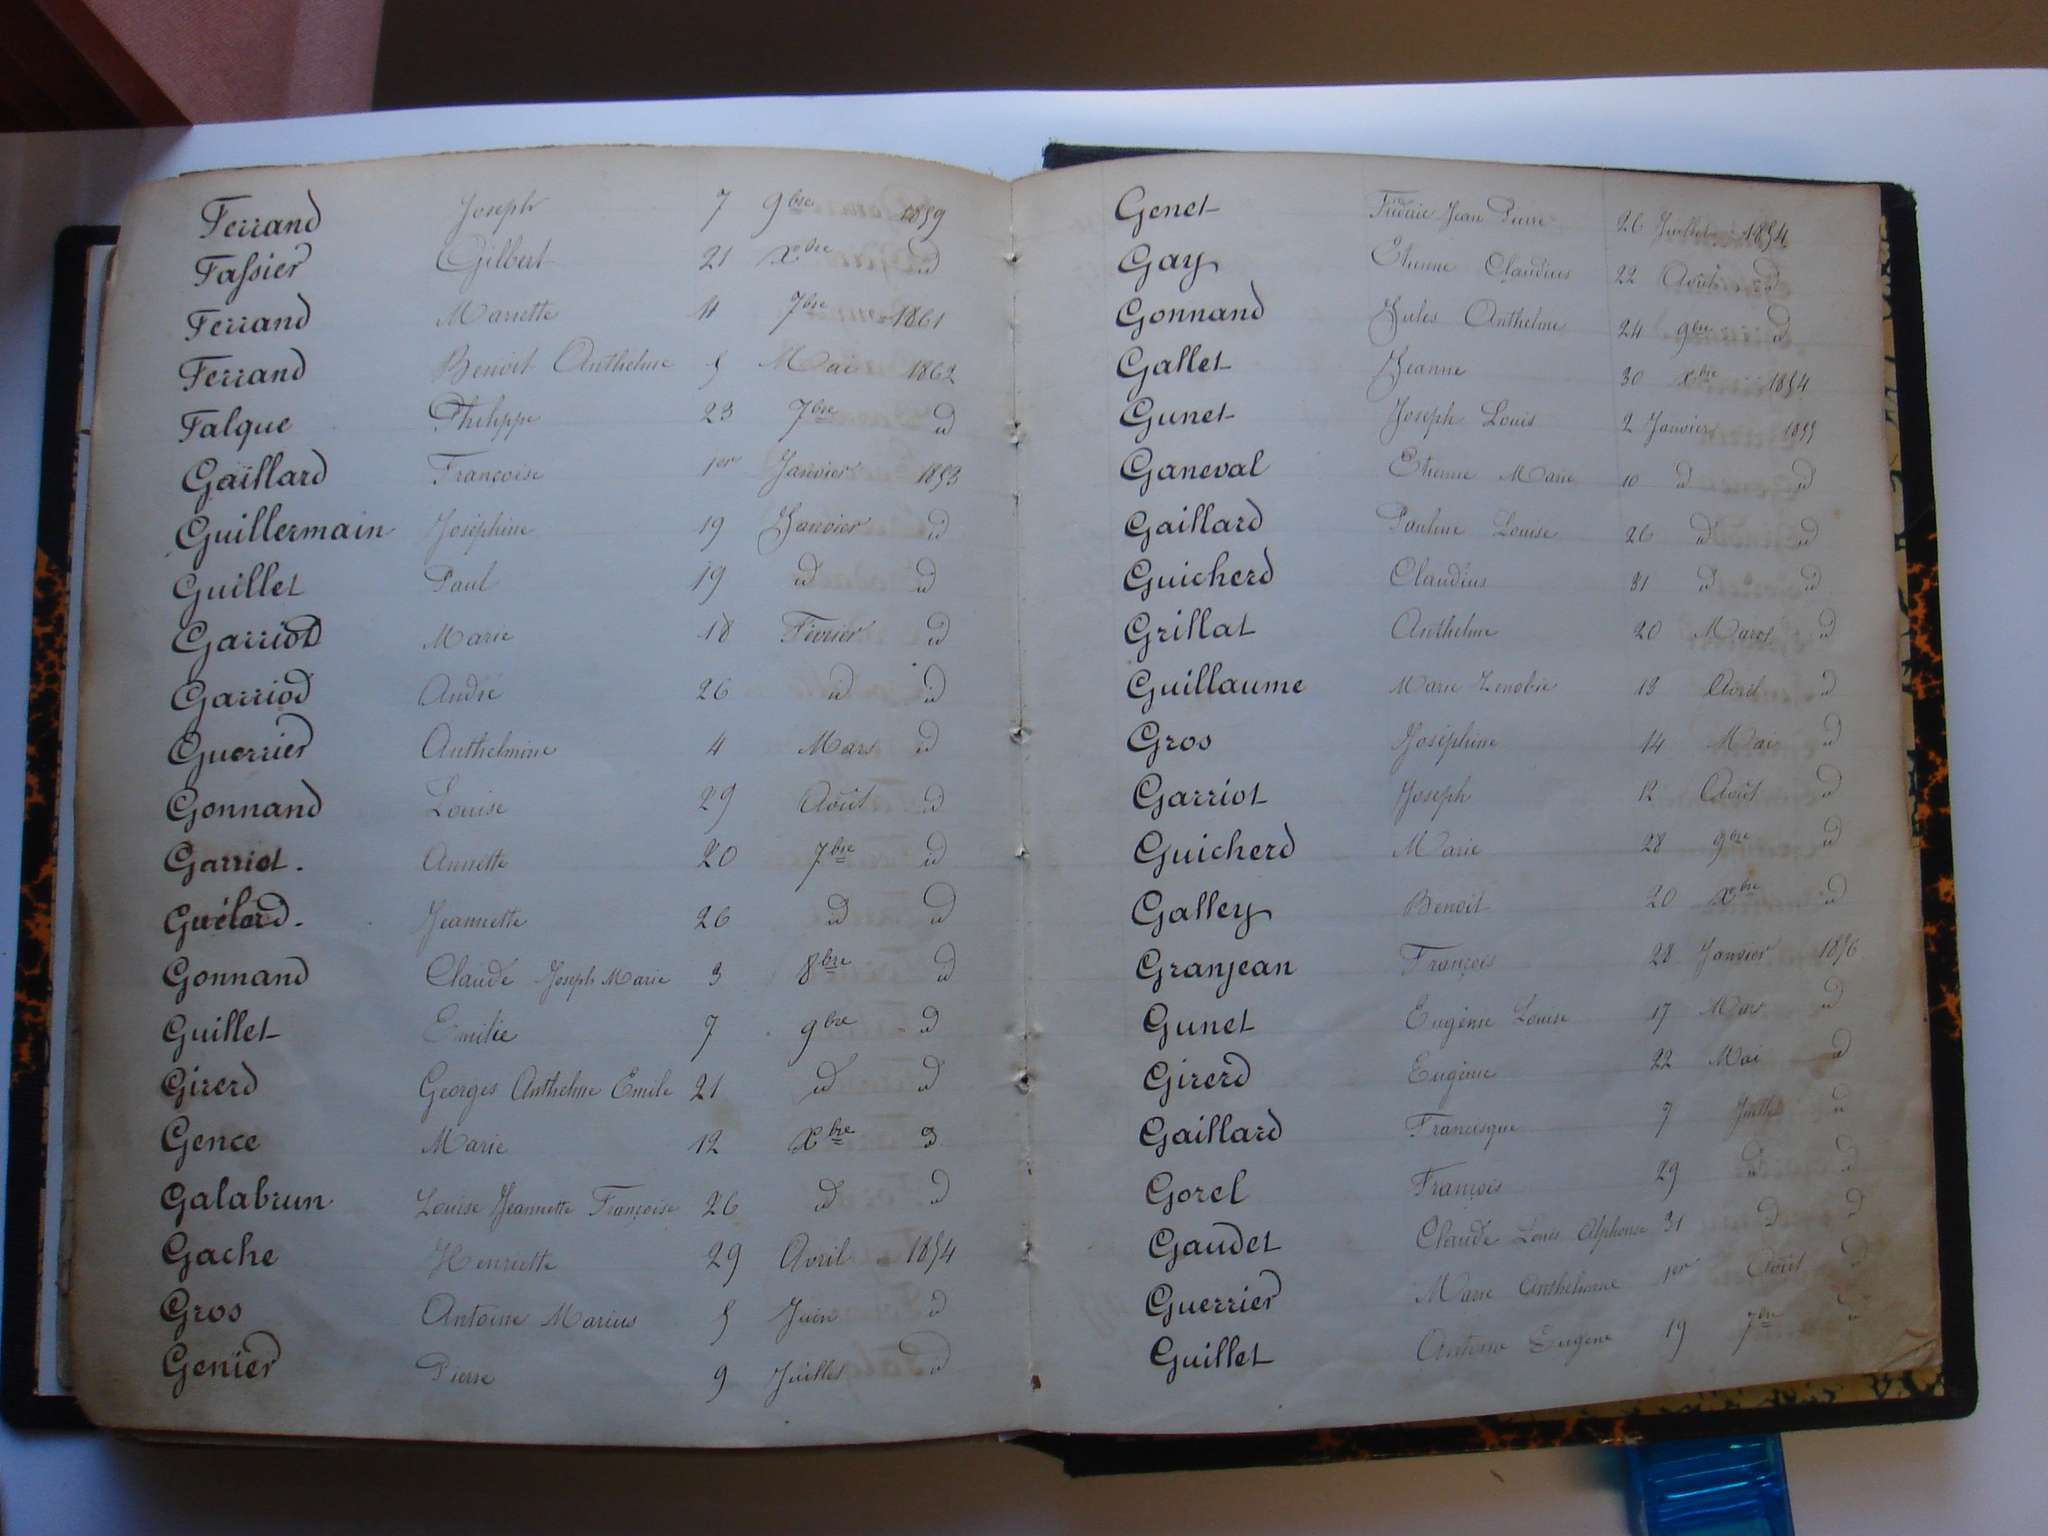 Ferrand Joseph 7 9bre 1859
Fassier Gilbert 21 Xbre id
Ferrand Mariette 11 7bre 1861
Ferrand Benoit Anthelme 5 Mai 1862
Falque Philippe 23 7bre id
Gaillard Françoise 1er Janvier 1853
Guillermain Joséphine 19 Janvier id
Guillet Paul 19 id id
Garriod Marie 18 Février id
Garriod André 26 id id
Guerrier Anthelmine 4 Mars id
Gonnand Louise 29 Août id
Garriot. Annette 20 7bre id
Guélard. Jeannette 26 id id
Gonnand Claude Joseph Marie 3 8bre id
Guillet Emilie 7 9bre id
Girerd Georges Anthelme Emile 21 id id
Gence Marie 12 Xbre id
Galabrun Louise Jeannette Françoise 26 id id
Gache Henriette 29 Avril 1854
Gros Antoine Marius 5 Juin id
Genier Pierre 9 Juillet id
Genet Jean Pierre 26 Juillet 1854
Gay Etienne Claudius 22 Août id
Gonnand Jules Anthelme 24 9bre id
Gallet Jeanne 30 Xbre 1854
Gunet Joseph Louis 2 Janvier 1855
Ganeval Etienne Marie 10 id id
Gaillard Pauline Louise 26 id id
Guicherd Claudius 31 id id
Grillat Anthelme 20 Mars id
Guillaume Marie Zenobie 13 Avril id
Gros Joséphine 14 Mai id
Garriot Joseph 12 Août id
Guicherd Marie 28 9bre id
Galley Benoit 20 Xbre id
Granjean François 28 Janvier 1856
Gunet Eugénie Louise 17 Mars id
Girerd Eugénie 22 Mai id
Gaillard Francisque 7 id
Gorel François 29 id id
Gaudet Claude Louis Alphonse 31 id id
Guerrier Marie Anthelmine 1er Août id
Guillet Antoine Eugène 19 7bre id